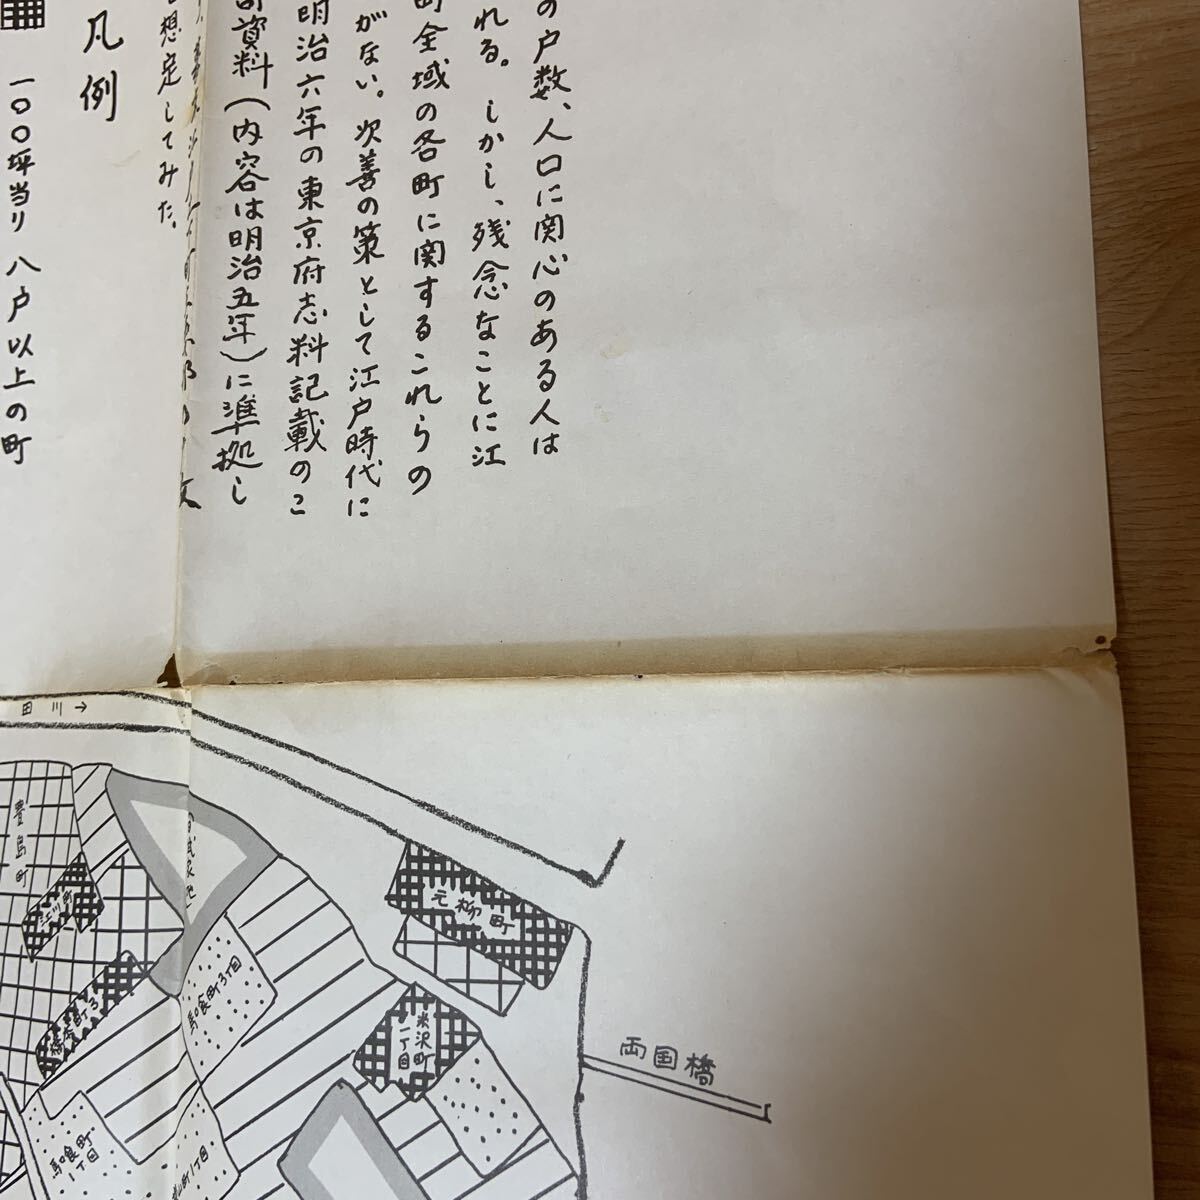 の戸数、人口に関心のある人は
れる。しかし、残念なことに江
町全域の各町に関するこれらの
がない。次善の策として江戸時代に
明治六年の東京府志料記載のこ
資料(内容は明治五年)に準拠し
想定してみた。
凡例
一〇〇坪当り 八戸以上の町
田川→
豊島町
江川町
橋本町3
馬喰町3丁目
元柳町
米沢町
一丁目
両国橋
馬喰町
1丁目
町1丁目